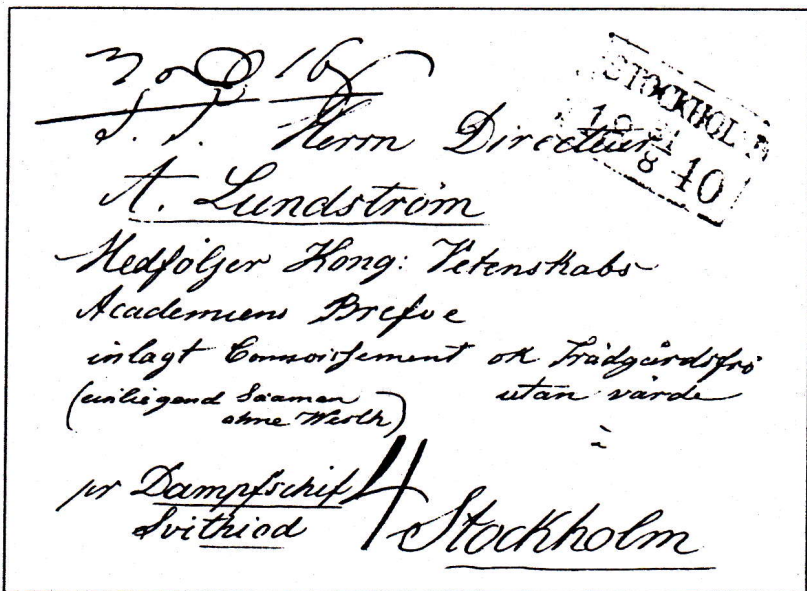 STOCKHOLM
10
8
S. T. Herrn Directeur
A. Lundström
Medföljer Kong: Vetenskabs
Academiens Brefve
inlagt Connoissement ok Trädgårdsfrö
(einliegend Saamen utan värde
ohne Werth)
pr Dampfschif 4
Svithiod
Stockholm